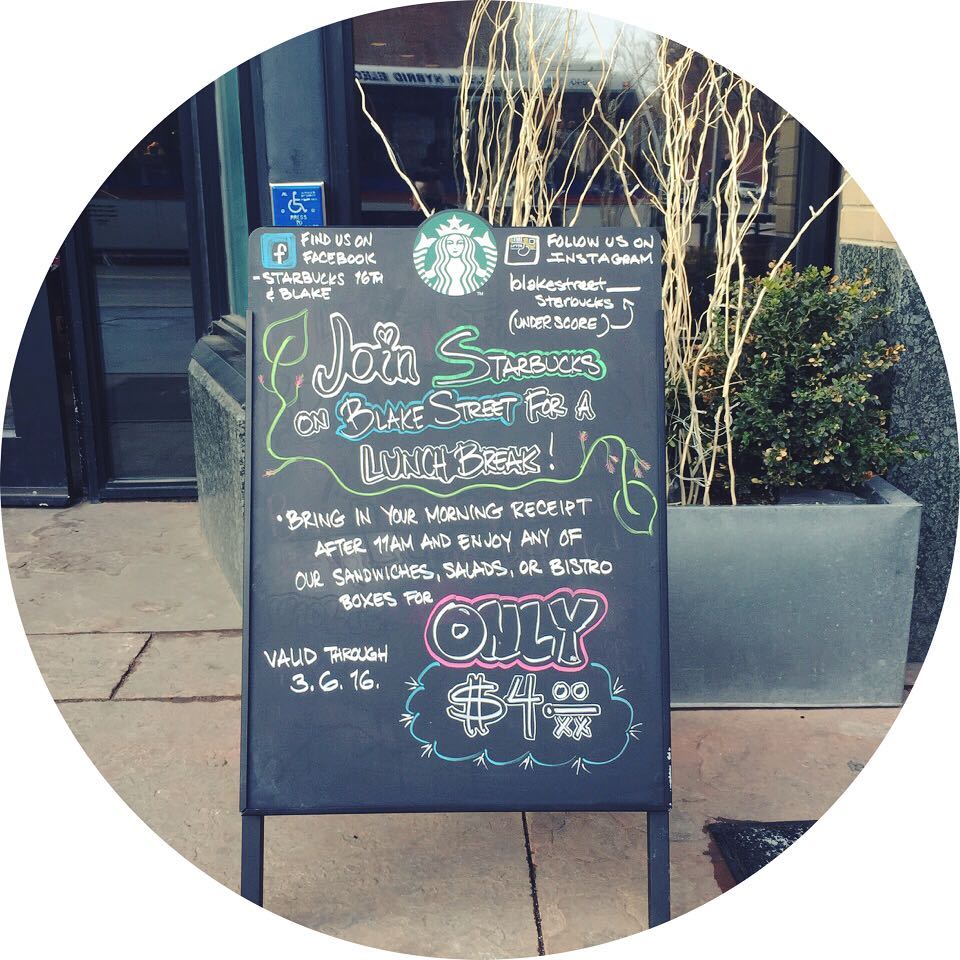 HYBRID ELEC
PRESS
TO
f
FIND US ON
FACEBOOK
- STARBUCKS 16TH
& BLAKE
FOLLOW US ON
INSTAGRAM
blakestreet___
Starbucks
(UNDERSCORE)
TM
Join STARBUCKS
ON BLAKE STREET FOR A
LUNCH BREAK!
• BRING IN YOUR MORNING RECEIPT
AFTER 11AM AND ENJOY ANY OF
OUR SANDWICHES, SALADS, OR BISTRO
BOXES FOR ONLY
$4.00/XX
VALID THROUGH
3.6.16.